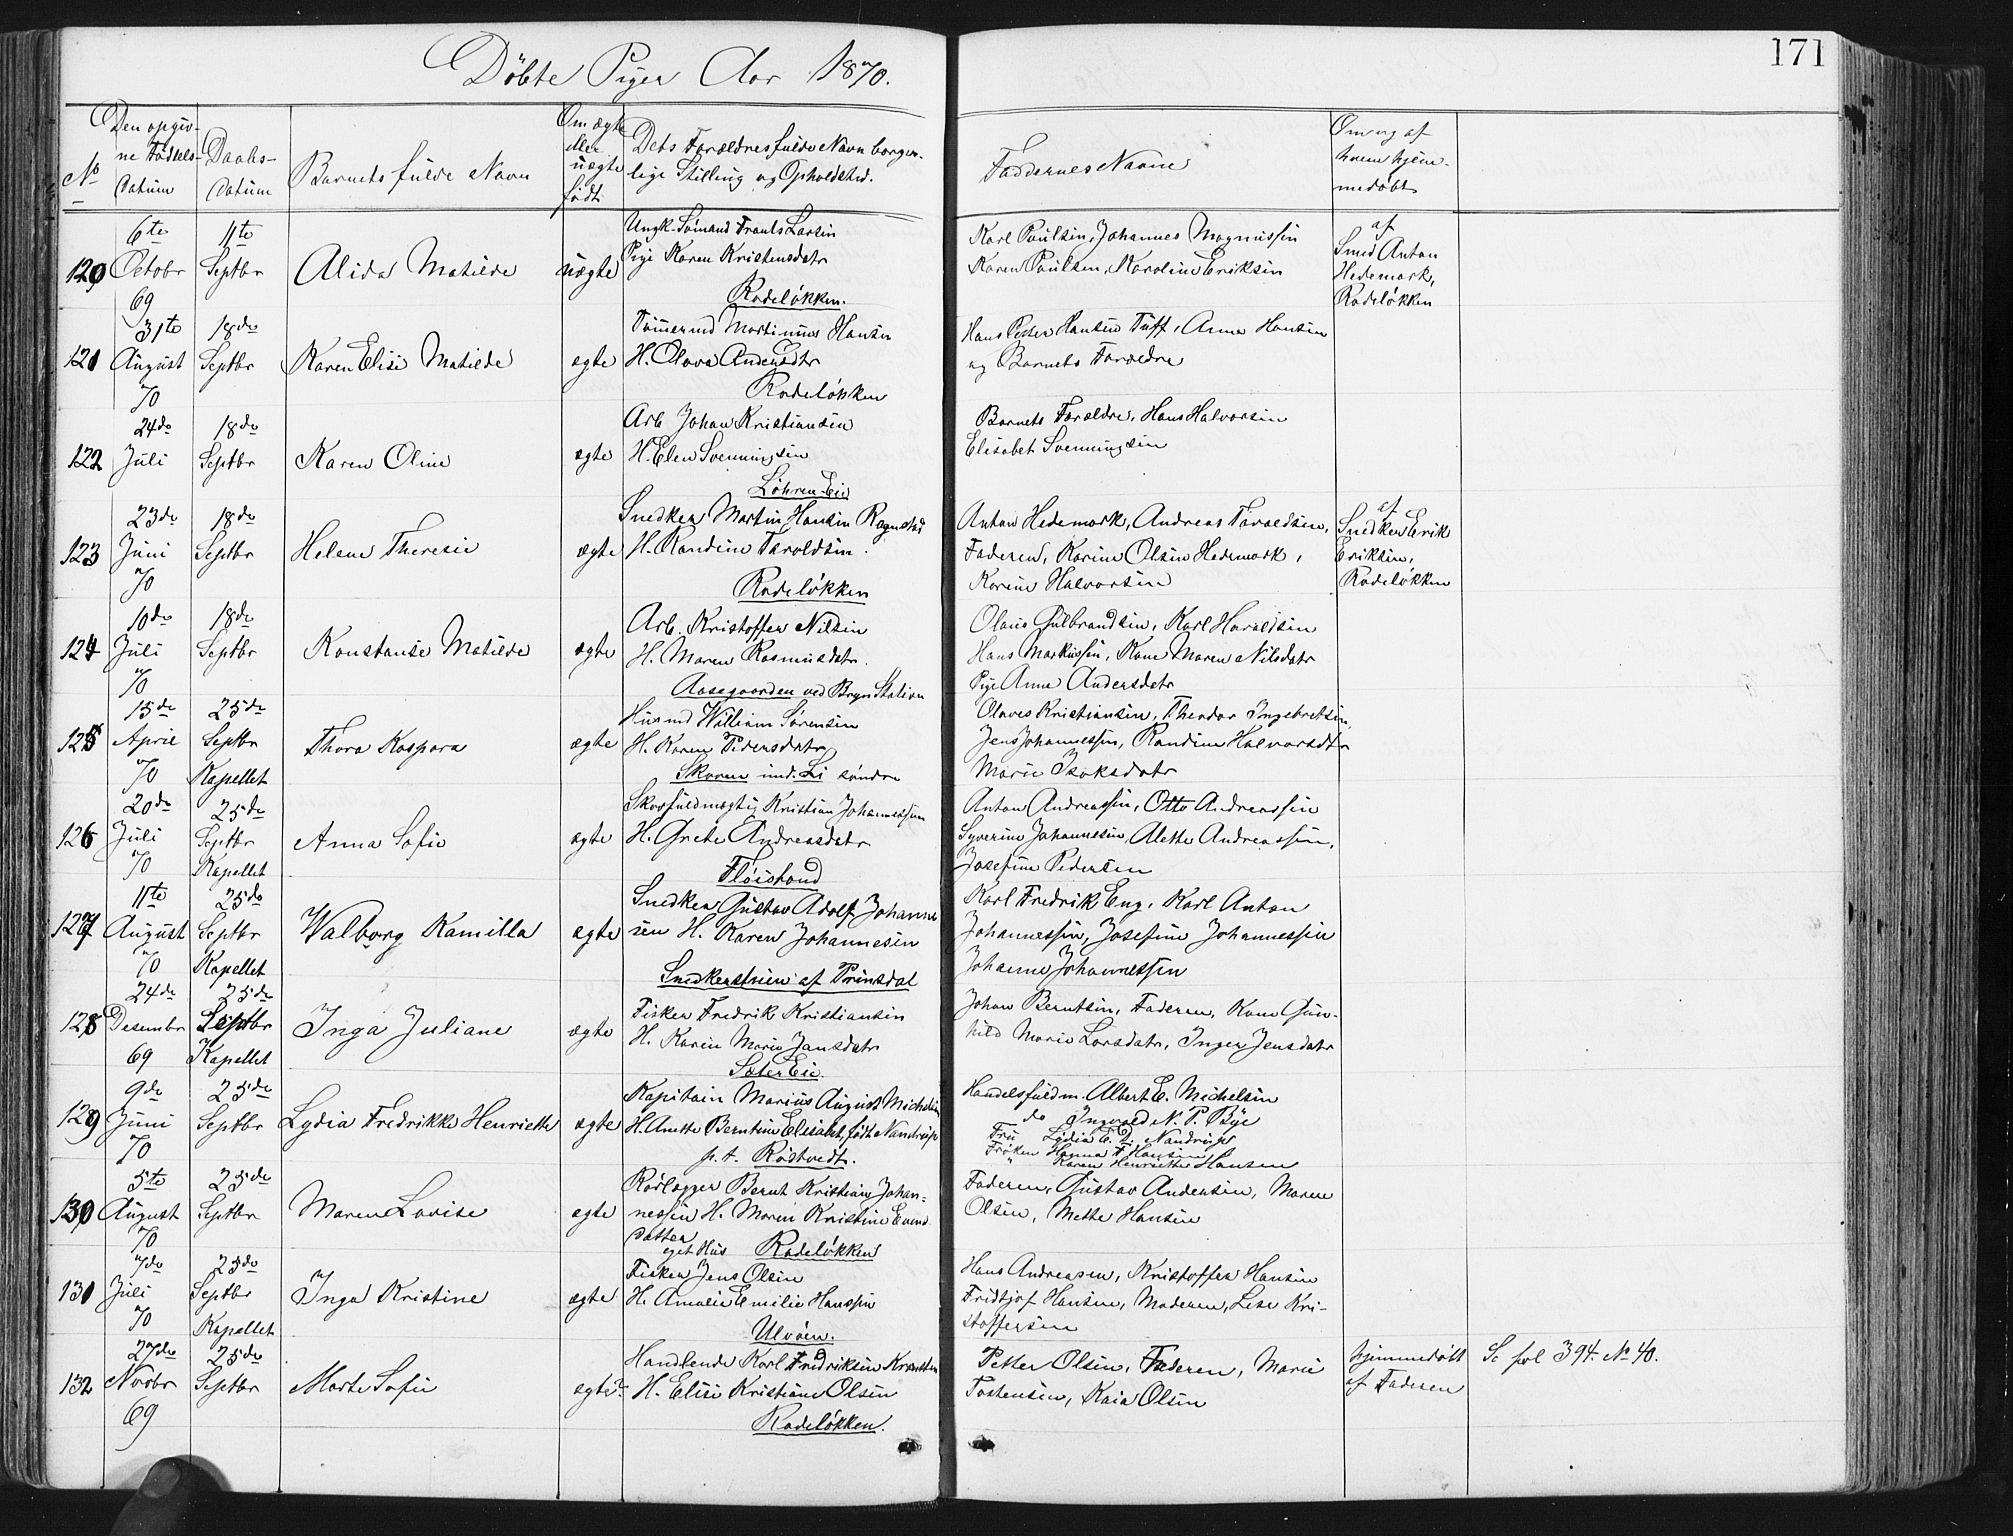 Döbte Piger Aar 1870.
171
No
Den opgiv-
ne Födsels-
Datum
Daabs-
Datum
Barnets fulde Navn
Om ægte
eller
uægte
født
Dets Forældres fulde Navn borger-
lige Stilling og Opholdsted.
Faddernes Navne
Om og af
hvem hjem-
medøbt
120
6te
Octobr
69
11te
Septbr
Alida Matilde
uægte
Ungk. Sömand Frants Larsen
Pige Karen Kristensdatr
Rodeløkken.
Karl Paulsen, Johannes Magnussen
Karen Paulsen, Karoline Eriksen
af
Smed Anton
Hedemark,
Rodeløkken
121
31te
August
70
18de
Septbr
Karen Elise Matilde
ægte
Tömmermd Martinus Hansen
H. Olava Andersdtr
Rodeløkken
Hans Peter Hansen Tuff, Anna Hansen
og Barnets Forældre
122
24de
Juli
18de
Septbr
Karen Oline
ægte
Arb Johan Kristiansen
H. Elen Svenningsen
Löhren Eie
Barnets Forældre, Hans Halvorsen
Elisabet Svenningsen
123
23de
Juni
70
18de
Septbr
Helene Theresie
ægte
Snedker Martin Hansen Rognstad
H. Randine Taroldsen.
Rodeløkken
Anton Hedemark, Andreas Taraldsen,
Faderen, Karine Olsen Hedemark,
Karine Halvorsen
af
Snedker Erik
Eriksen,
Rodeløkken
124
10de
Juli
70
18de
Septbr
Konstanse Matilde
ægte
Arb. Kristoffer Nilsen
H. Maren Rasmusdatr.
Aasegaarden ved Bryn Station
Olaus Gulbrandsen, Karl Haraldsen
Hans Markussen, Kone Maren Nilsdatr
Pige Anne Andersdatr
125
15de
April
70
25de
Septbr
Kapellet
Thora Kaspara
ægte
Husmd William Sörensen
H. Karen Pedersdatr
Skaren und. Li söndre
Olaves Kristiansen, Theodor Ingebretsen
Jens Johannessen, Randine Halvorsdtr
Marie Isaksdatr
126
20de
Juli
70
25de
Septbr
Kapellet
Anna Sofie
ægte
Skovfuldmægtig Kristian Johannessen
H. Grete Andreasdatr
Fløistand
Anton Andreassen, Otto Andreassen
Syverine Johannesen, Alette Andreassen,
Josefine Pedersen
127
11te
August
70
25de
Septbr
Kapellet
Valborg Kamilla
ægte
Snedker Gustav Adolf Johannes
sen H. Karen Johannesen
Snedkerstuen af Prinsdal
Karl Fredrik Eng, Karl Anton
Johannessen, Josefine Johannessen
Johanne Johannessen
128
24de
Desembr
69
25de
Septbr
Kapellet
Inga Juliane
ægte
Fisker Fredrik Kristiansen
H. Karen Marie Jansdatr
Sæter Eie.
Johan Berntsen, Faderen, Kone Gun-
hild Marie Larsdatr, Inger Jensdatr
129
9de
Juni
70
25de
Septbr
Lydia Fredrikke Henriette
ægte
Kapitain Marius August Michelsen
H. Anette Berntine Elisabet, født Nandrup
p.t. Rostvedt.
Handelsfuldm. Albert E. Michelsen
do Ingvald N. P. Bye
Fru Lydia E. D. Nandrup
Frøken Hanna F. Hansen
" Karen Henriette Hansen
130
5te
August
70
25de
Septbr
Maren Lovise
ægte
Rörlægger Bernt Kristian Johan-
nessen H. Maren Kristine Evens
datter
eget Hus Rodeløkken
Faderen, Gustav Andersen, Maren
Olsen, Mette Hansen
131
7de
Juli
70
25de
Septbr
Kapellet
Inga Kristine
ægte
Fisker Jens Olsen
H. Amalie Emilie Hanssen
Ulvöen.
Hans Andreasen, Kristoffer Hansen
Fridtjof Hansen, Moderen, Lise Kri-
stoffersen
132
27de
Novbr
69
25de
Septbr
Marte Sofie
ægte
Handlende Karl Fredriksen
H. Elise Kristiane Olsen
Rodeløkken.
Petter Olsen, Faderen, Marie
Tostensen, Kaia Olsen
hjemmedøbt
af Faderen
Se fol 394. No 40.